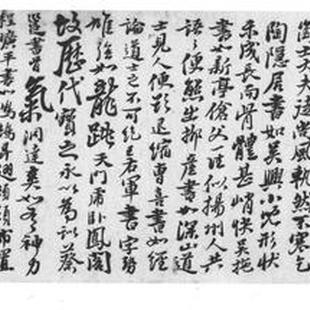 士大夫徒尚風軌然不寒乞
陶隱居書如吳興小兒形狀
未成長而骨體甚峭快吳施
書如新亭傖父一往似揚州人共
語語便態出柳產書如深山道
士見人便欲退縮曹喜書如經
論道士言不可絕王右軍書字勢
雄強如龍跳天門虎臥鳳閣
故歷代寶之永以為訓蔡
邕書骨氣洞達爽如有神力
程曠平書如鴻鵠弄翅頡頏布置